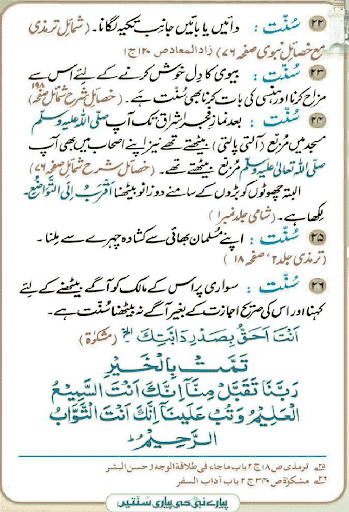 ۲۲ سُنّت : دائیں یا بائیں جانب تکیہ لگانا۔ (شمائل ترمذی
مع خصائل نبوی صفحہ ۷۶) زادالمعاد ص ۱۲۰ ج ۱
۲۳ سُنّت : بیوی کا دل خوش کرنے کے لئے اس سے
مزاح کرنا اور ہنسی کی بات کرنا بھی سُنّت ہے۔ (خصائل شرح شمائل صفحہ ۱۹۸)
۲۴ سُنّت : بعد نماز فجر اشراق تک آپ صلی اللہ علیہ وسلم
مسجد میں مُربّع (آلتی پالتی) بیٹھتے تھے نیز اپنے اصحاب میں بھی آپ
صلی اللہ تعالیٰ علیہ وسلم مُربّع بیٹھتے تھے۔ (خصائل شرح شمائل صفحہ ۷۶)
البتہ چھوٹوں کو بڑوں کے سامنے دو زانو بیٹھنا اَقرَبُ اِلَی التَّوَاضُعِ۔
لکھا ہے۔ (شامی جلد نمبر ۱)
۲۵ سُنّت : اپنے مُسلمان بھائی سے کشادہ چہرے سے ملنا۔
(ترمذی جلد ۲، صفحہ ۱۸)
۲۶ سُنّت : سواری پر اس کے مالک کو آگے بیٹھنے کے لئے
کہنا اور اس کی صریح اجازت کے بغیر آگے نہ بیٹھنا سُنّت ہے۔
اَنْتَ اَحَقُّ بِصَدْرِ دَابَّتِكَ الخ (مشکوٰۃ)
تَمَّتْ بِالْخَيْرِ
رَبَّنَا تَقَبَّلْ مِنَّا اِنَّكَ اَنْتَ السَّمِيْعُ
الْعَلِيْمُ وَتُبْ عَلَيْنَا اِنَّكَ اَنْتَ التَّوَّابُ
الرَّحِيْمُ
۲۵ ترمذی ص ۱۸ ج ۲ باب ماجاء فی طلاقة الوجه وحسن البشر
۲۶ مشکوٰۃ ص ۳۴۰ ج ۲ باب آداب السفر
پیارے نبی کی پیاری سُنتیں